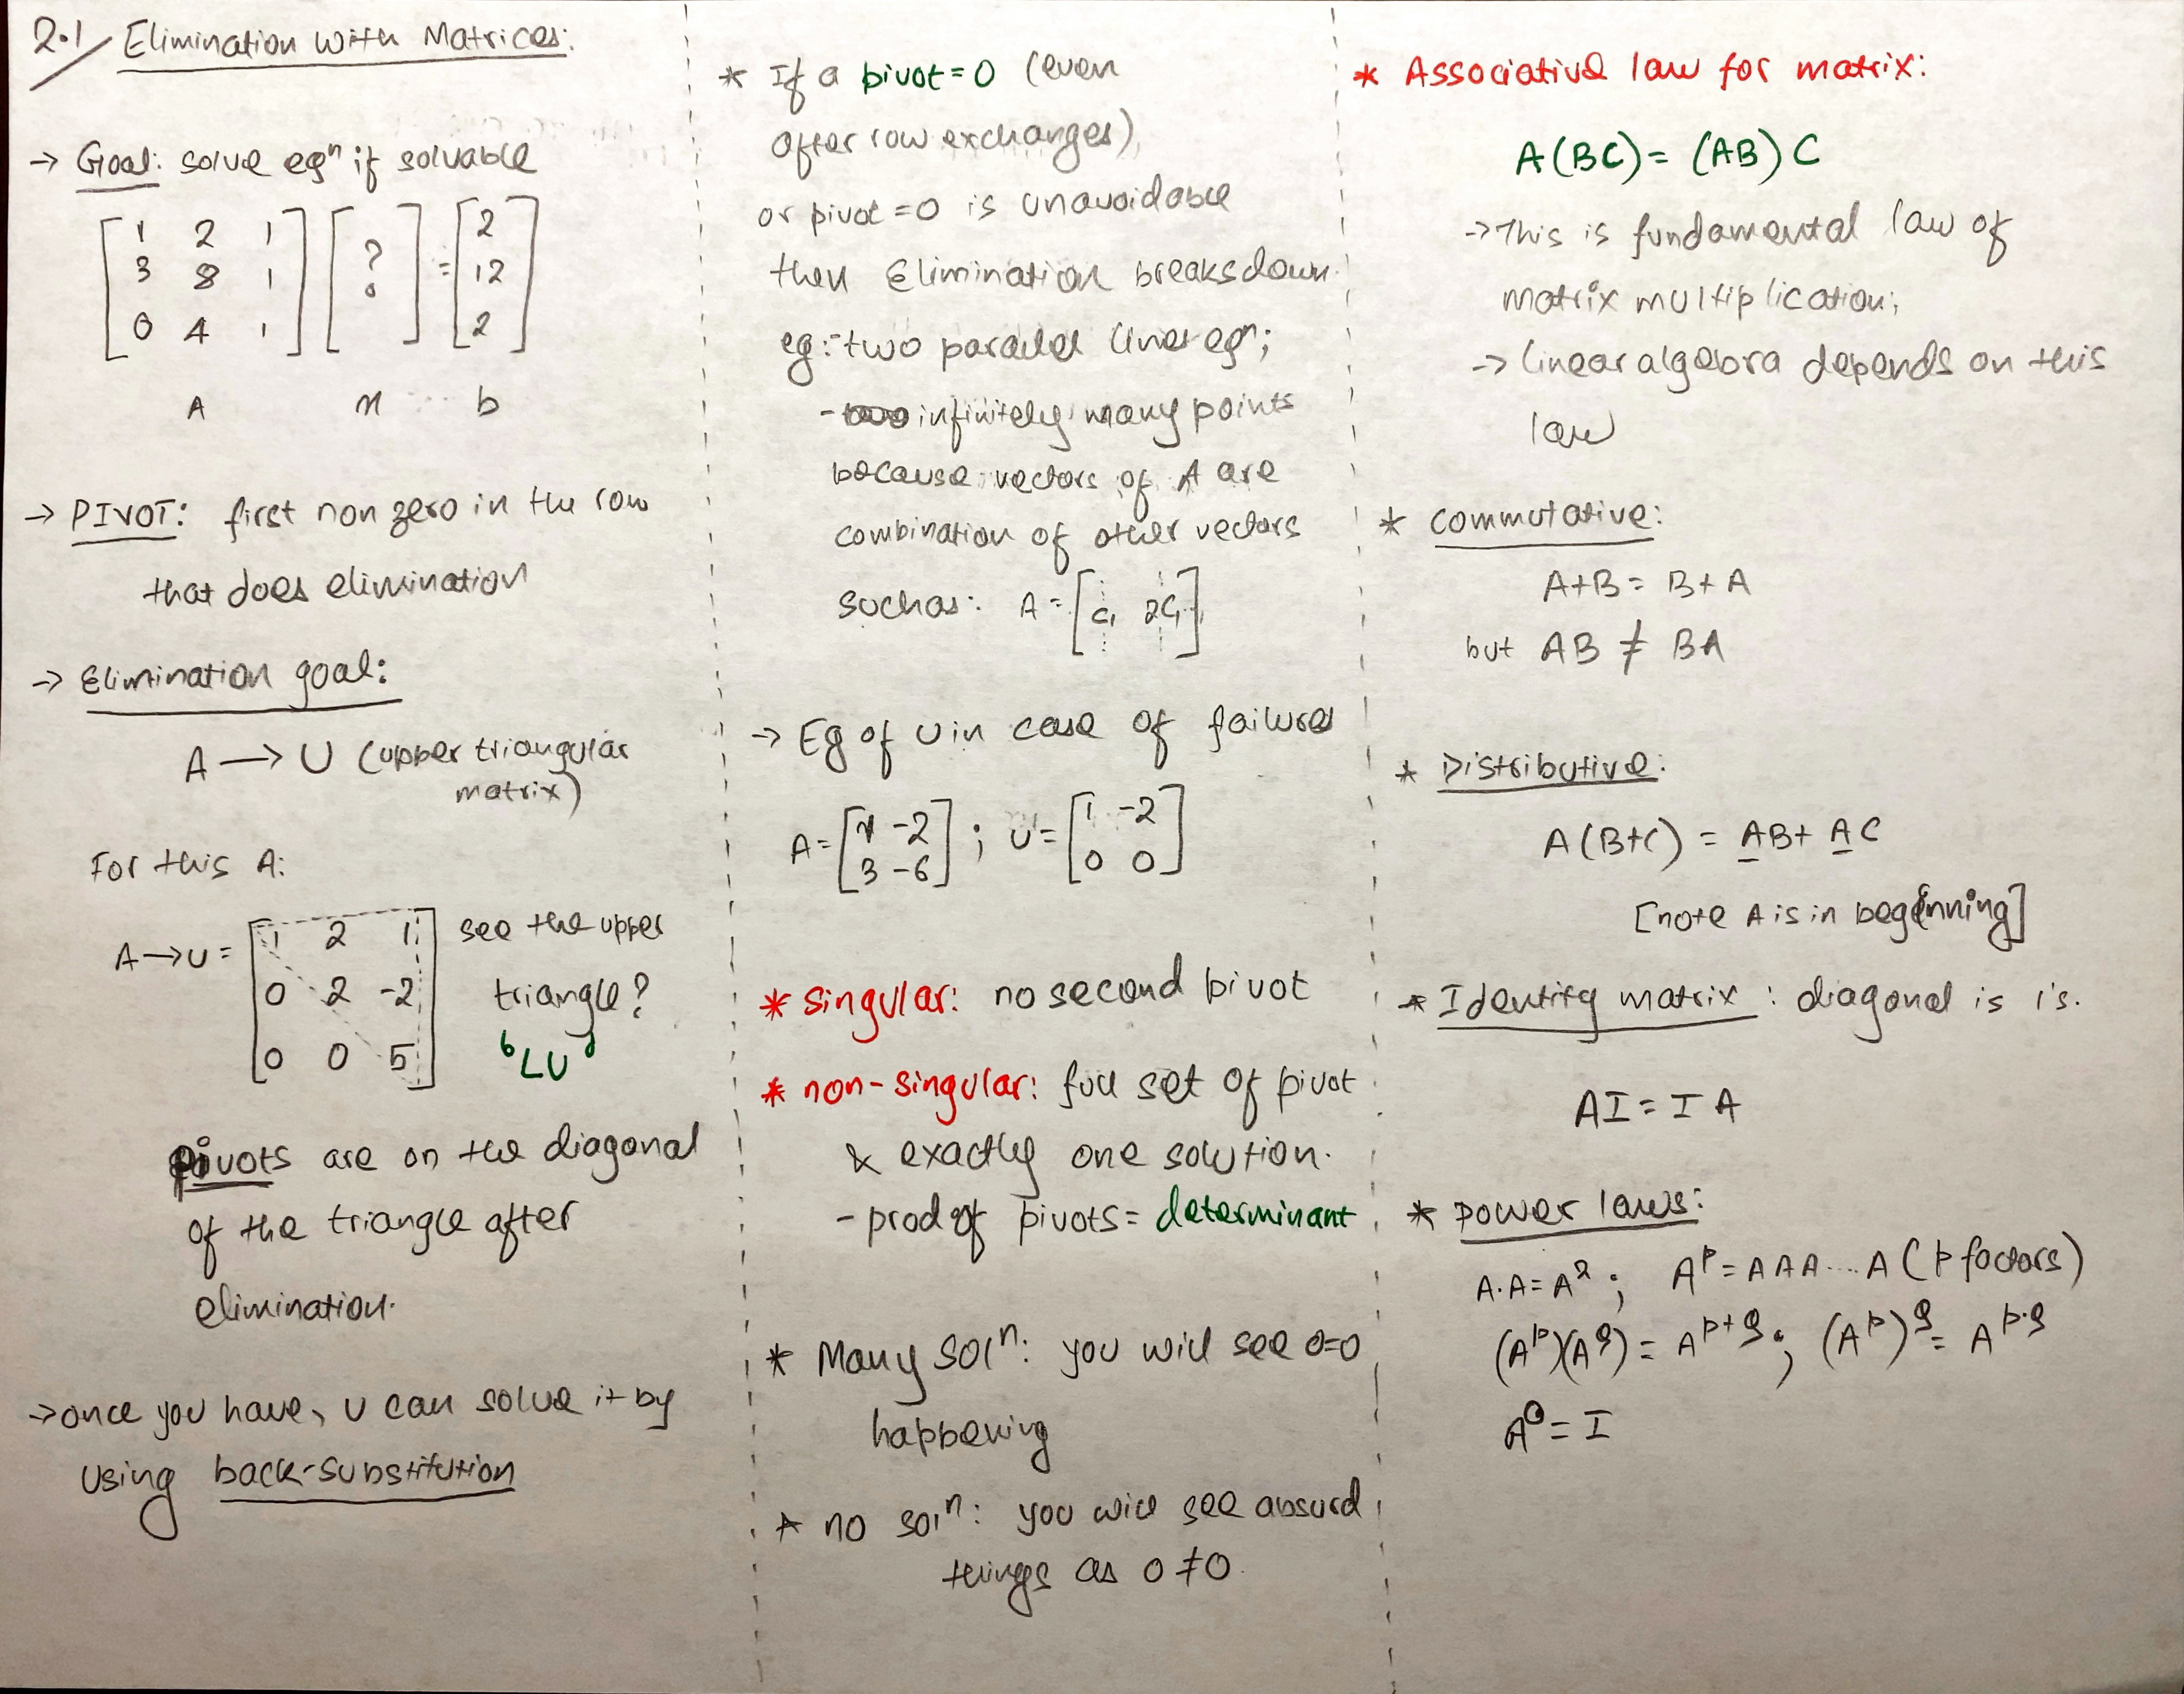 2.1/ Elimination with Matrices:
→ Goal: solve eqⁿ if solvable
[1 2 1
3 8 1
0 4 1] [?] = [2
12
2]
A x b
→ PIVOT: first non zero in the row
that does elimination
→ Elimination goal:
A → U (upper triangular
matrix)
For this A:
A→U = [1 2 1
0 2 -2
0 0 5]
see the upper
triangle?
'LU'
pivots are on the diagonal
of the triangle after
elimination.
→ once you have, u can solve it by
using back-substitution
* If a pivot = 0 (even
after row exchanges)
or pivot = 0 is unavoidable
then Elimination breaksdown.
eg:- two parallel lines eqⁿ;
- infinitely many points
because vectors of A are
combination of other vectors
such as: A = [c₁ 2c₁]
→ Eg of U in case of failures
A = [1 -2
3 -6] ; U = [1 -2
0 0]
* singular: no second pivot
* non-singular: full set of pivot
& exactly one solution.
- prod of pivots = determinant
* Many solⁿ: you will see 0=0
happening
* no solⁿ: you will see absurd
things as 0≠0
* Associative law for matrix:
A(BC) = (AB)C
→ This is fundamental law of
matrix multiplication;
→ linear algebra depends on this
law
* commutative:
A+B = B+A
but AB ≠ BA
* Distributive:
A(B+C) = AB + AC
[note A is in beginning]
* Identity matrix : diagonal is 1's.
AI = IA
* power laws:
A.A = A² ; Aᵖ = AAA...A (p factors)
(Aᵖ)(A^q) = A^(p+q) ; (Aᵖ)^q = A^(p·q)
A⁰ = I